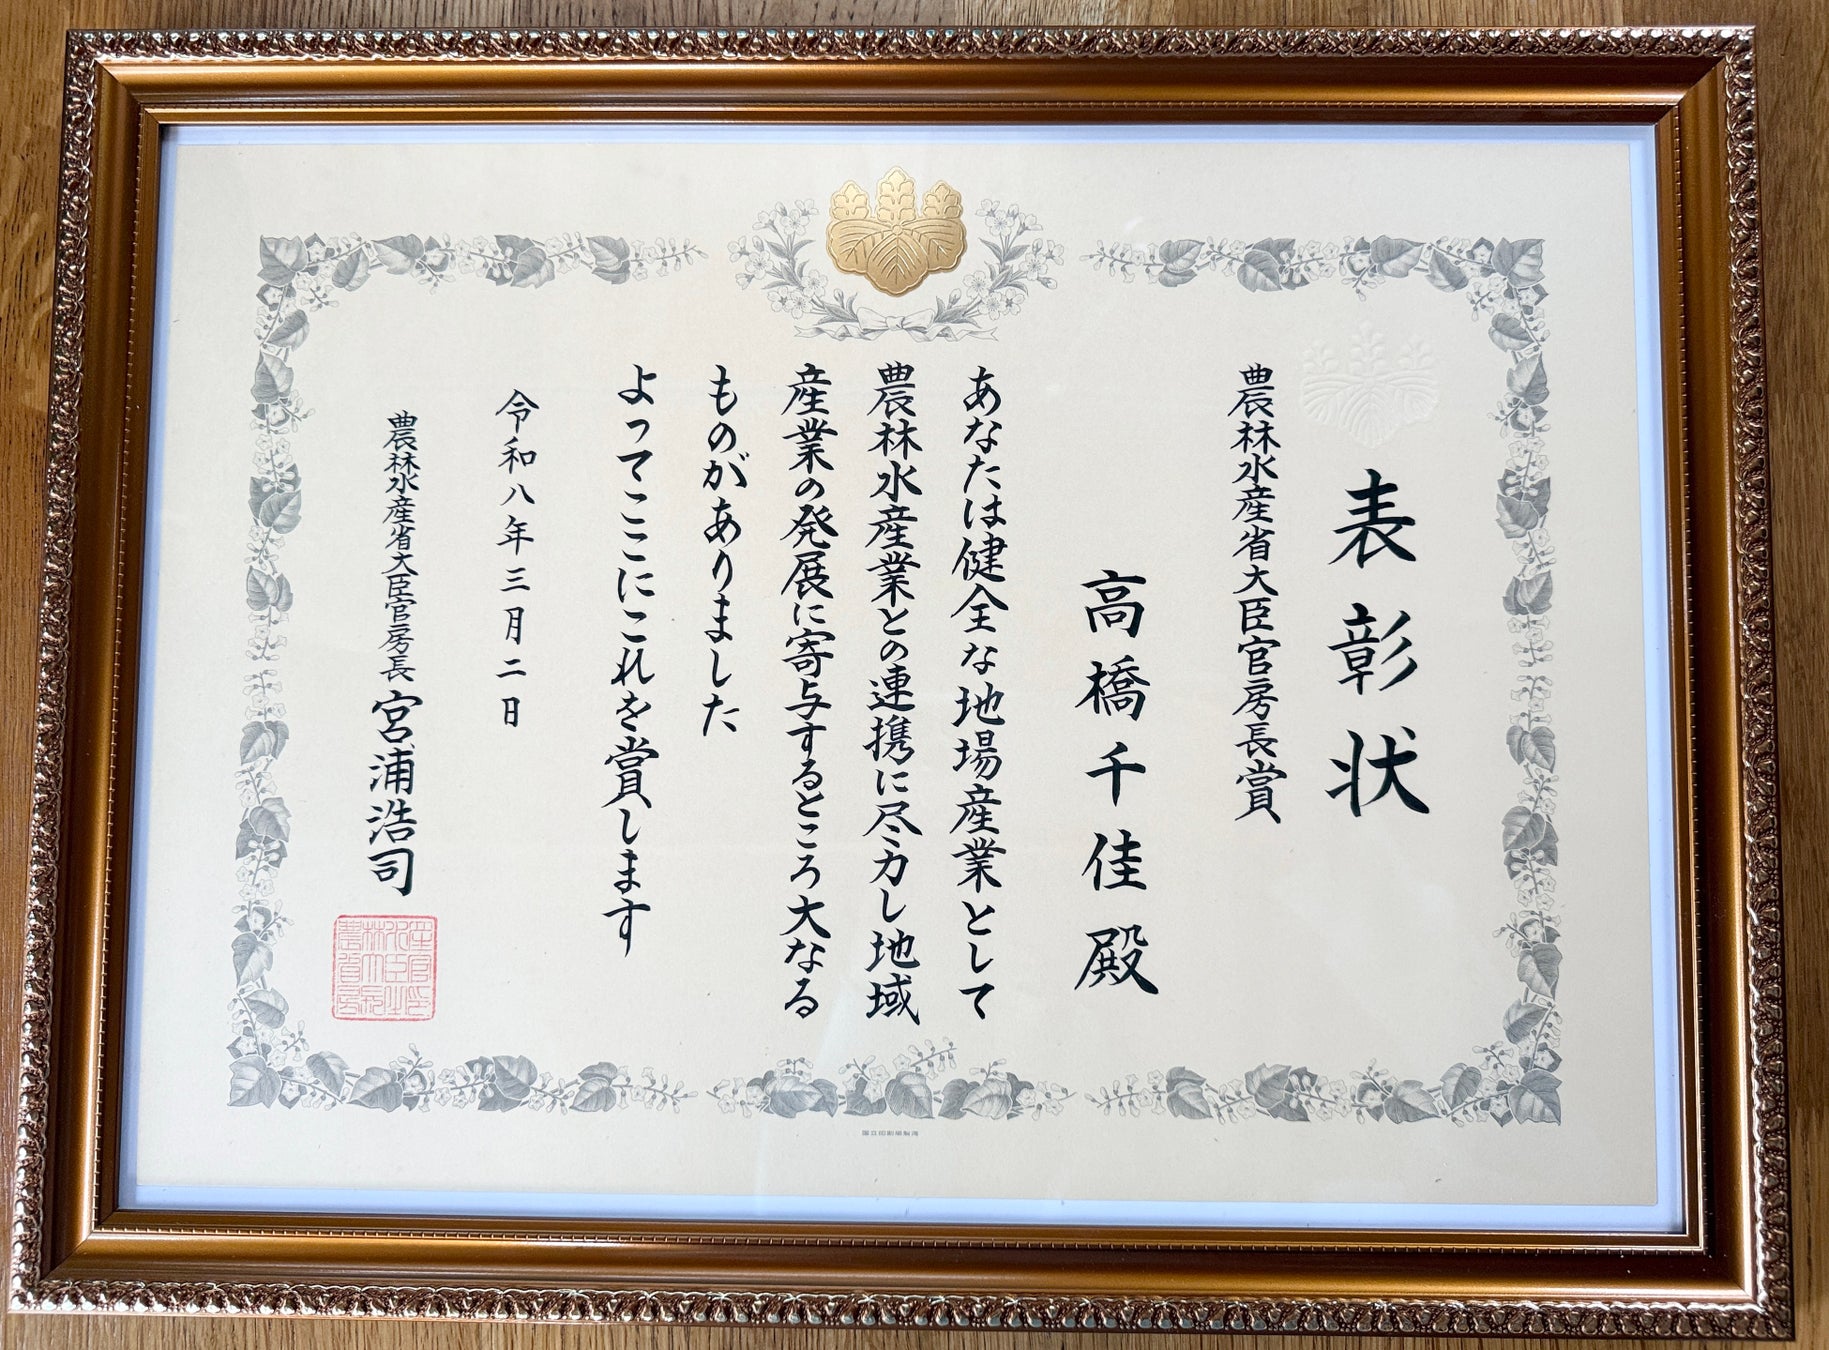 表彰状
農林水産省大臣官房長賞
高橋千佳殿
あなたは健全な地場産業として
農林水産業との連携に尽力し地域
産業の発展に寄与するところ大なる
ものがありました
よってここにこれを賞します
令和八年三月二日
農林水産省大臣官房長 宮浦浩司
国立印刷局製造